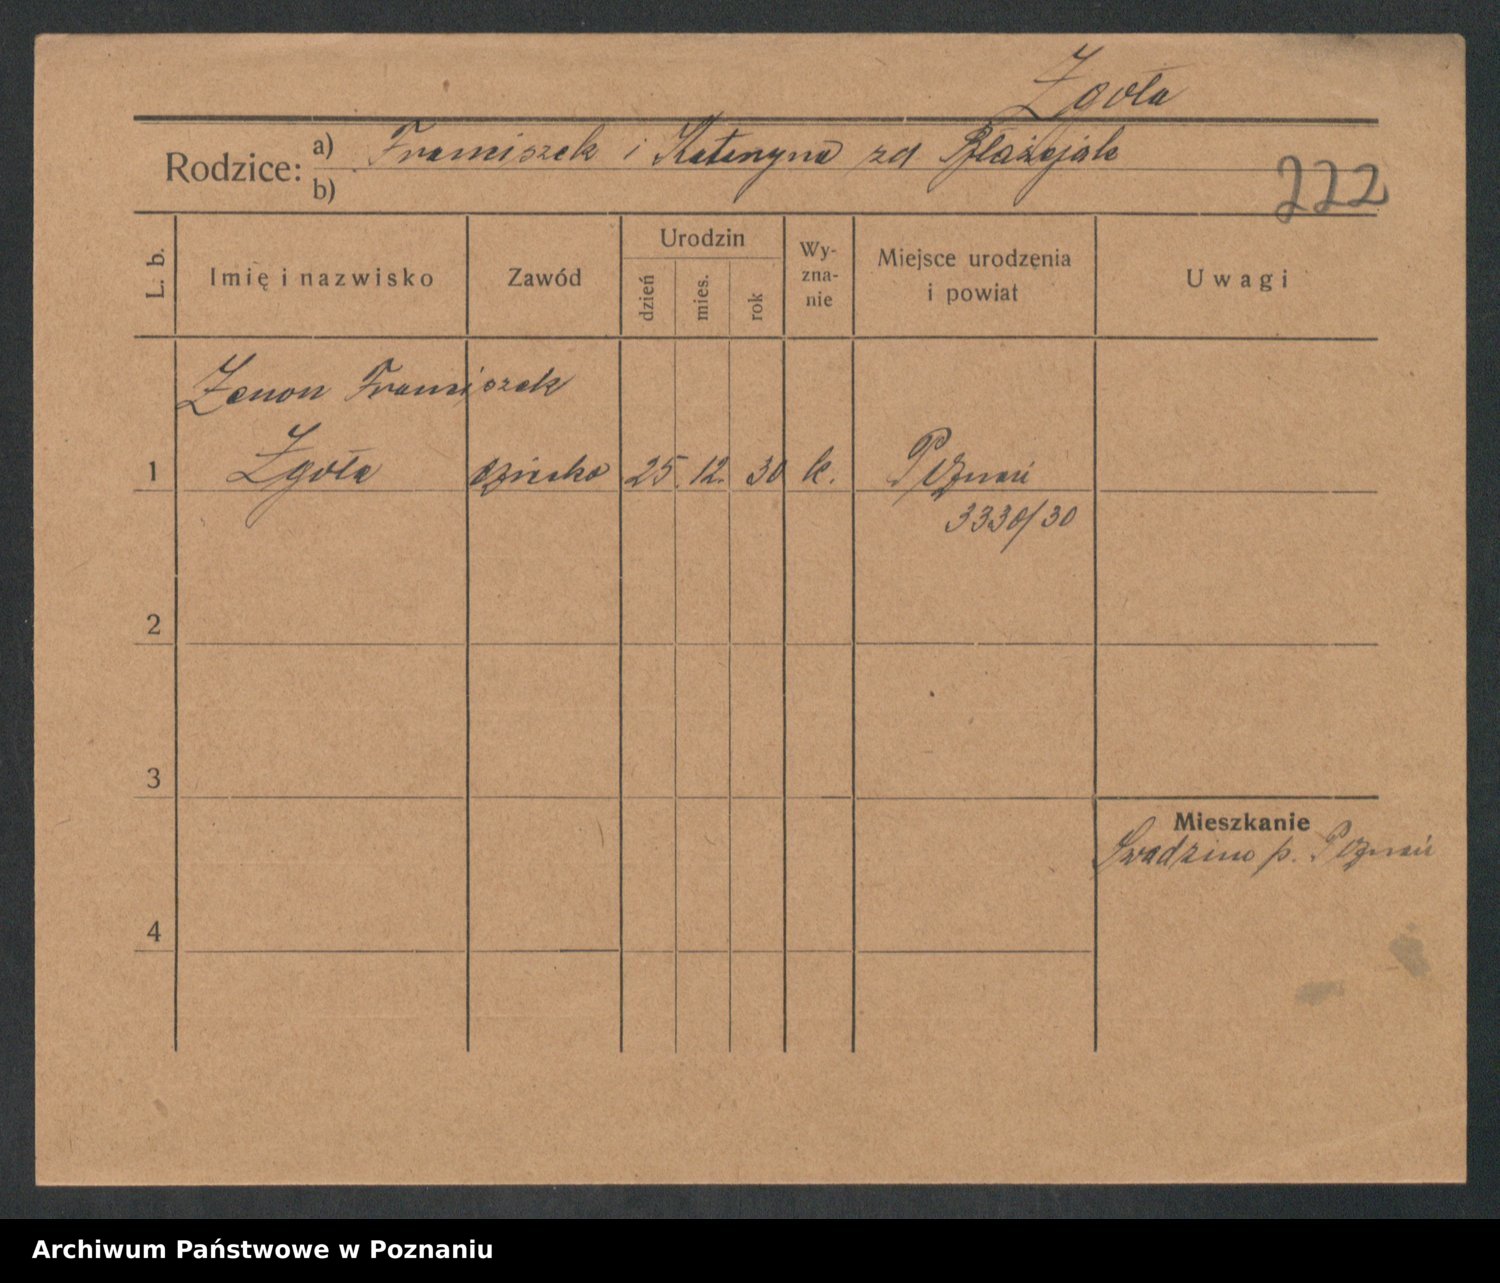 Zgoła
Rodzice: a) Franciszek i Katarzyna zd Błażejak
b)
222
L. b.
Imię i nazwisko
Zawód
Urodzin
dzień
mies.
rok
Wy-
zna-
nie
Miejsce urodzenia
i powiat
Uwagi
Zenon Franciszek
1 Zgoła dziecko 25. 12. 30 k. Poznań
3330/30
2
3
Mieszkanie
Swadzim p. Poznań
4
Archiwum Państwowe w Poznaniu